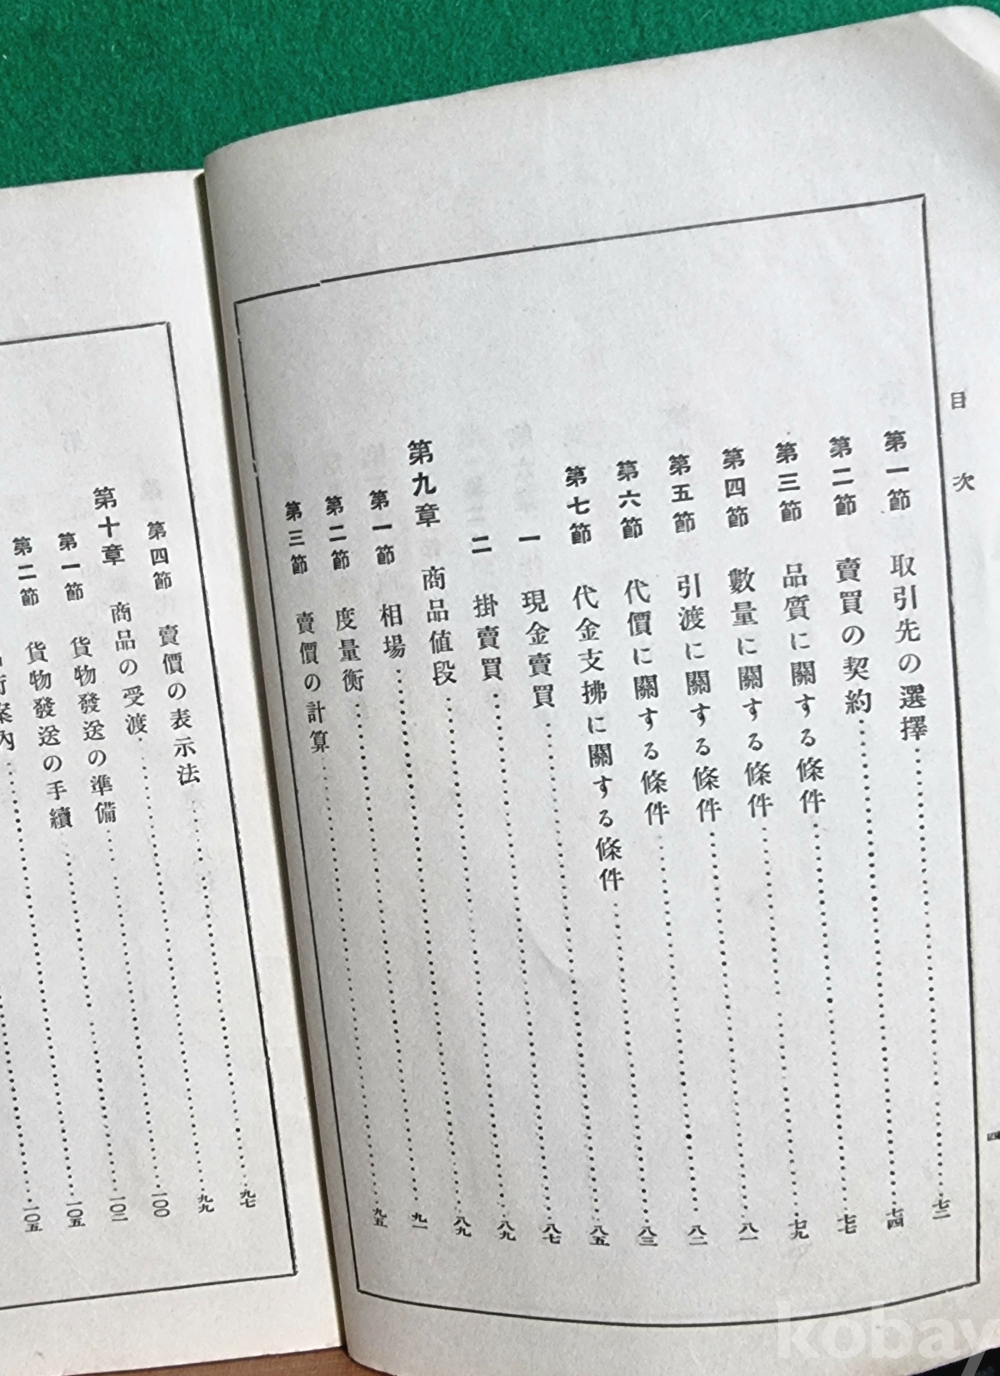 目次
四
第一節 取引先の選擇……七二
第二節 賣買の契約……七四
第三節 品質に關する條件……七七
第四節 數量に關する條件……七九
第五節 引渡に關する條件……八一
第六節 代價に關する條件……八二
第七節 代金支拂に關する條件……八三
一 現金賣買……八五
二 掛賣買……八七
第九章 商品値段……八九
第一節 相場……八九
第二節 度量衡……九一
第三節 賣價の計算……九五
第四節 賣價の表示法……九七
第十章 商品の受渡……九九
第一節 貨物發送の準備……一〇〇
第二節 貨物發送の手續……一〇二
案內……一〇五
一〇五
kobay